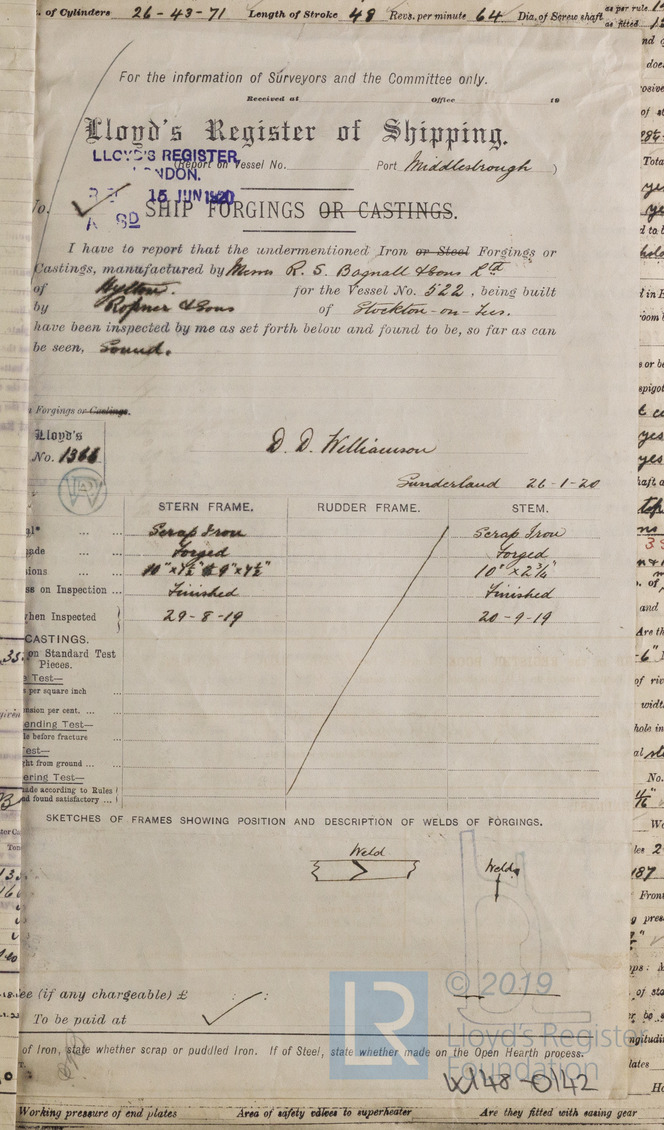 of Cylinders 26-43-71 Length of Stroke 48 Revs. per minute 64 Dia. of Screw shaft as per rule
as fitted
For the information of Surveyors and the Committee only.
Received at Office 19
Lloyd's Register of Shipping.
LLOYD'S REGISTER,
LONDON.
15 JUN 1920
(Report on Vessel No. Port Middlesbrough )
No.
SHIP FORGINGS OR CASTINGS.
I have to report that the undermentioned Iron or Steel Forgings or
Castings, manufactured by Messrs R. S. Bagnall & Sons Ltd
of Hylton. for the Vessel No. 522, being built
by Ropner & Sons of Stockton-on-Tees.
have been inspected by me as set forth below and found to be, so far as can
be seen, Sound.
Forgings or Castings.
Lloyd's
No. 1366
D. D. Williamson
Sunderland 26-1-20
STERN FRAME. RUDDER FRAME. STEM.
Scrap Iron Scrap Iron
Forged Forged
10" x 2¾"
on Inspection Finished Finished
when Inspected 29-8-19 20-9-19
CASTINGS.
on Standard Test
Pieces.
Test—
per square inch
per cent.
ending Test—
before fracture
est—
ht from ground
ering Test—
ade according to Rules
d found satisfactory
SKETCHES OF FRAMES SHOWING POSITION AND DESCRIPTION OF WELDS OF FORGINGS.
Weld
Welds
ee (if any chargeable) £ : :
To be paid at
of Iron, state whether scrap or puddled Iron. If of Steel, state whether made on the Open Hearth process.
LR © 2019
Lloyd's Register
Foundation
W148-0142
Working pressure of end plates Area of safety valves to superheater Are they fitted with easing gear